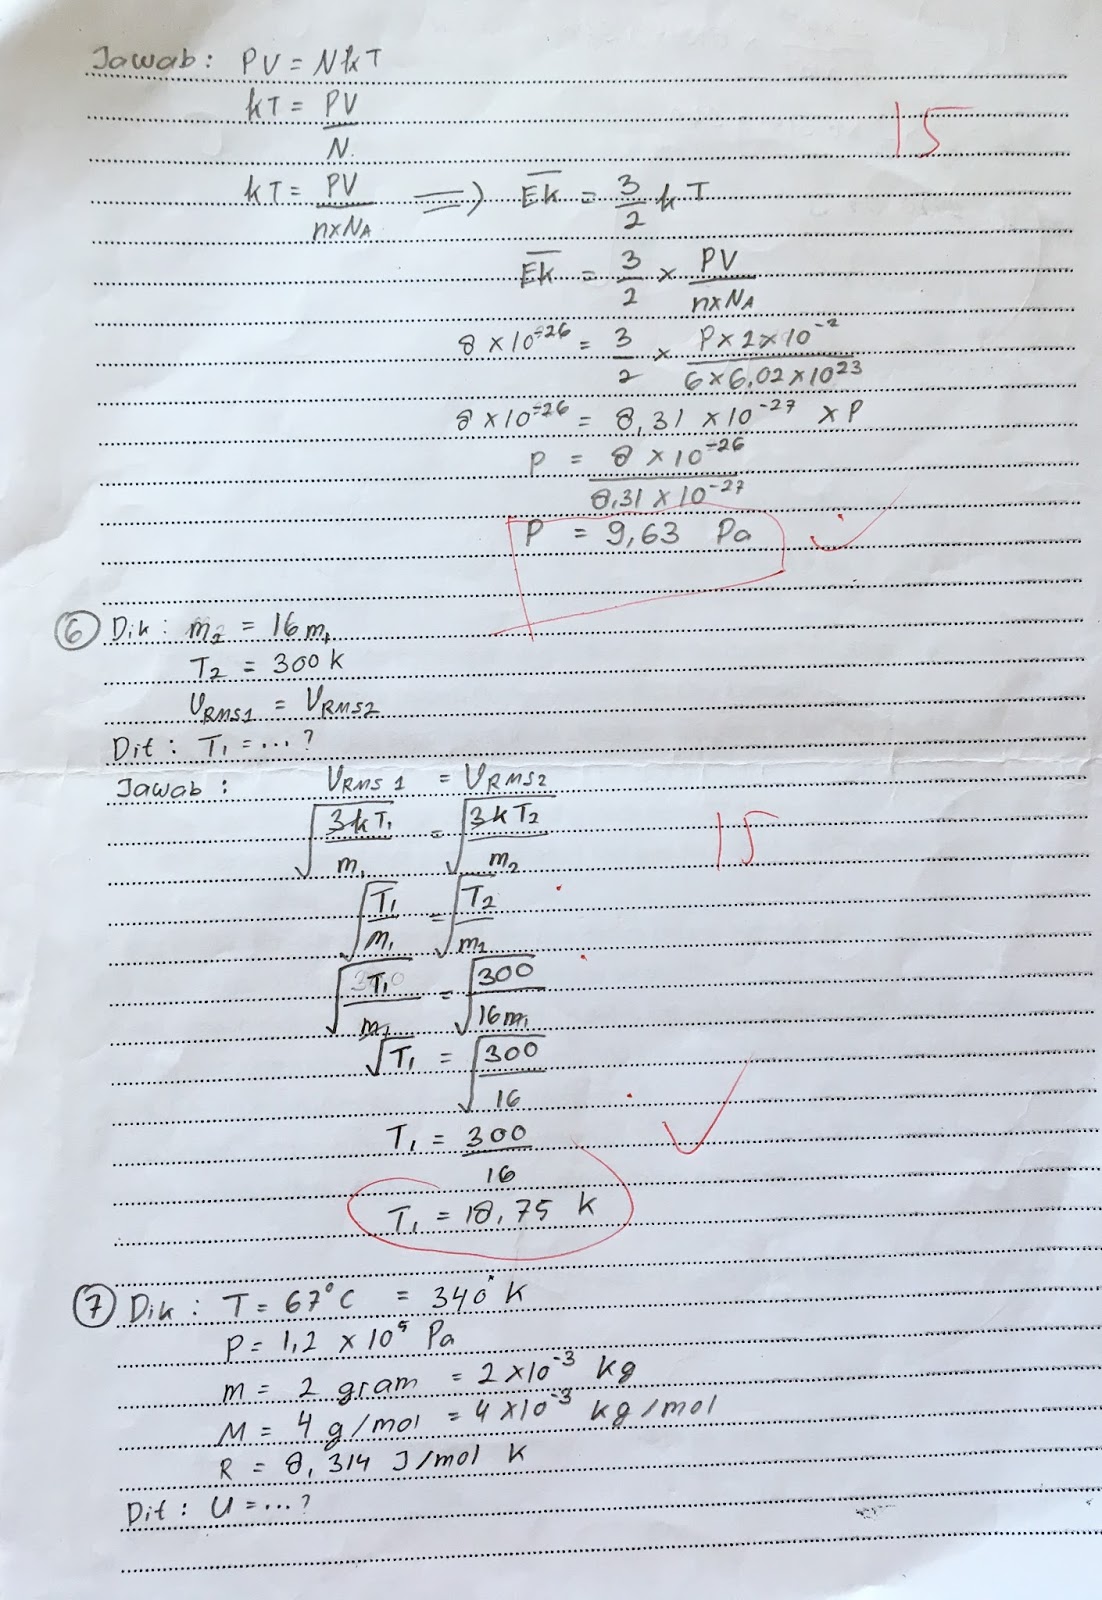 Jawab : PV = NkT
kT = PV/N
15
kT = PV/(n×NA) => Ek = 3/2 kT
Ek = 3/2 × PV/(n×NA)
8 × 10^-26 = 3/2 × (P × 2 × 10^-2)/(6 × 6,02 × 10^23)
8 × 10^-26 = 8,31 × 10^-27 × P
P = (8 × 10^-26)/(8,31 × 10^-27)
P = 9,63 Pa
6 Dik : m2 = 16 m1
T2 = 300 k
VRMS1 = VRMS2
Dit : T1 = ... ?
Jawab : VRMS1 = VRMS2
√(3kT1/m1) = √(3kT2/m2)
15
√(T1/m1) = √(T2/m2)
√(T1/m1) = √(300/16m1)
√T1 = √(300/16)
T1 = 300/16
T1 = 18,75 k
7 Dik : T = 67°C = 340° K
P = 1,2 × 10^5 Pa
m = 2 gram = 2 × 10^-3 kg
M = 4 g/mol = 4 × 10^-3 kg/mol
R = 8,314 J/mol K
Dit : U = ... ?